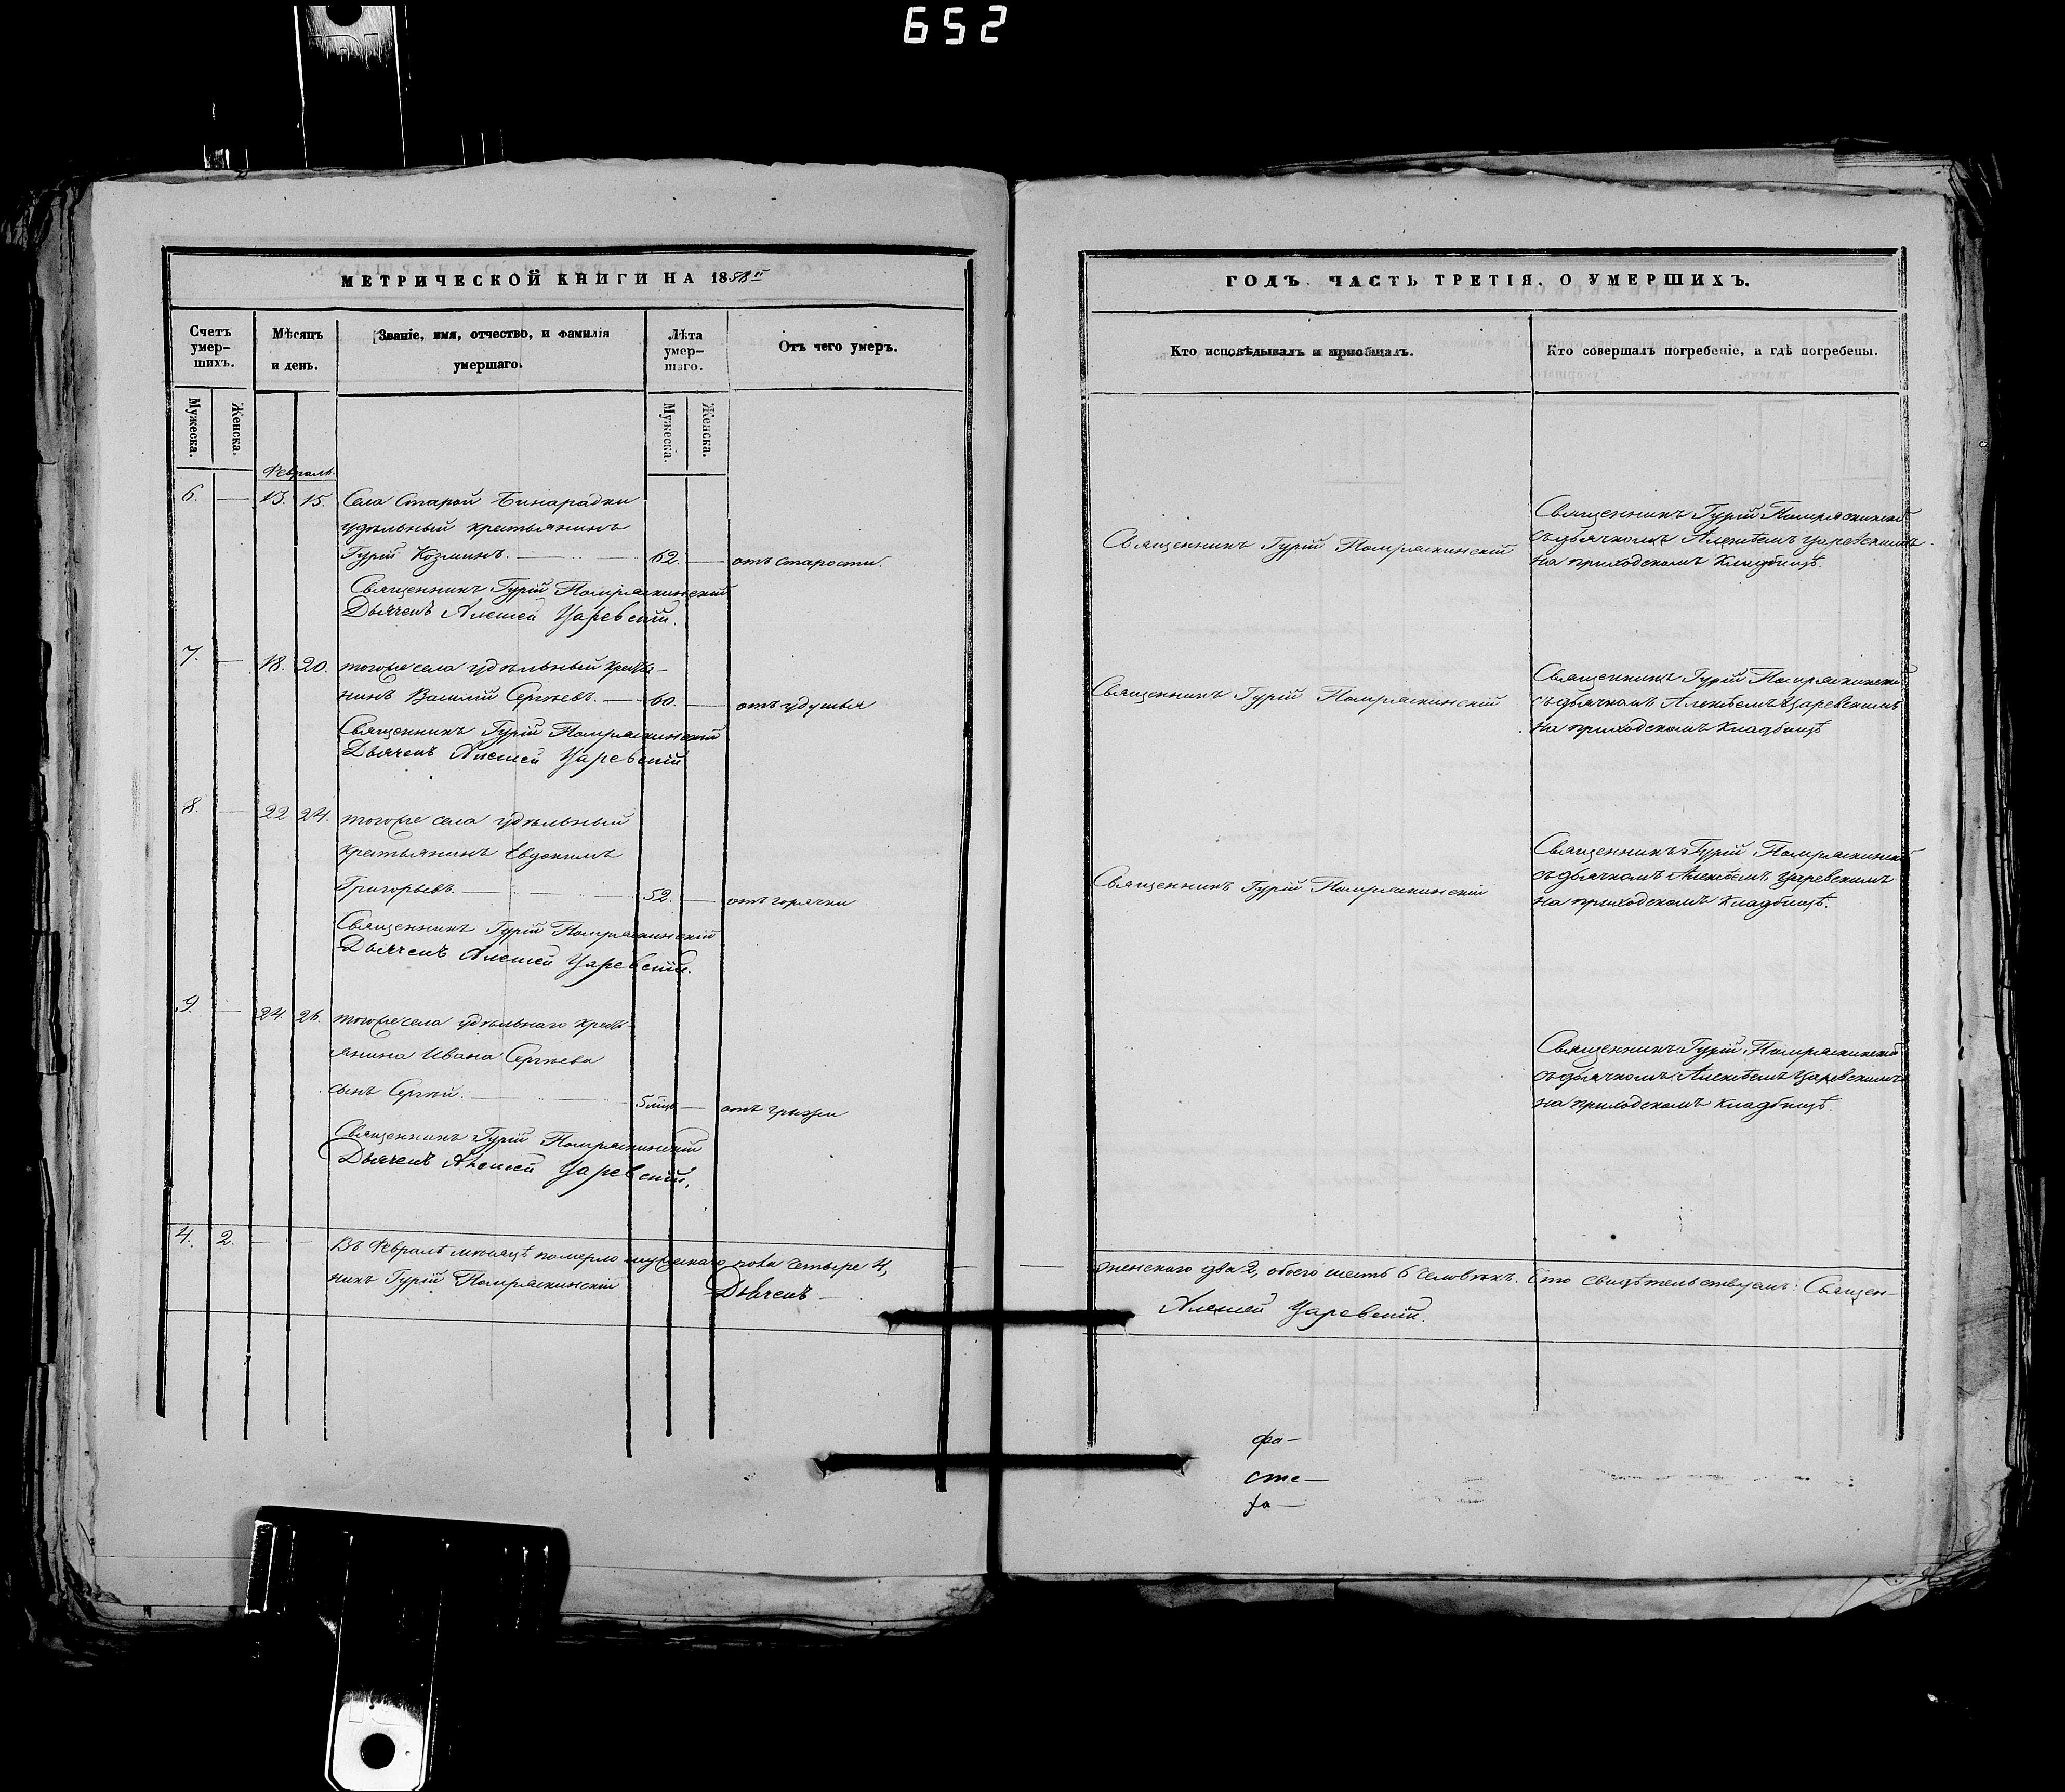 652
МЕТРИЧЕСКОЙ КНИГИ НА 1858 й
Счетъ умер-шихъ.
Мѣсяцъ и день.
Званіе, имя, отчество, и фамилія умершаго.
Лѣта умер-шаго.
Отъ чего умеръ.
Мужеска.
Женска.
Мужеска.
Женска.
Февраль.
6. — 13. 15. Села Старой Бинарадки
удѣльный крестьянинъ
Гурій Козминъ. — 62. — отъ старости.
Священникъ Гурій Помряскинскій
Дьячекъ Алексей Царевскій.
7. — 18. 20. тогоже села удѣльный крестья-
нинъ Василій Сергѣевъ. — 60. — отъ удушья
Священникъ Гурій Помряскинскій
Дьячекъ Алексей Царевскій
8. — 22 24. тогоже села удѣльный
крестьянинъ Евдокимъ
Григорьевъ. — 52. — отъ горячки
Священникъ Гурій Помряскинскій
Дьячекъ Алексей Царевскій.
9. — 24. 26. тогоже села удѣльнаго кресть-
янина Ивана Сергѣева
сынъ Сергѣй. — 5 мѣця — отъ грыжи
Священникъ Гурій Помряскинскій
Дьячекъ Алексей Царевскій.
4. 2. — — Въ Февралѣ мѣсяцѣ померло мужескаго пола четыре 4,
никъ Гурій Помряскинскій Дьячекъ —
ГОДЪ. ЧАСТЬ ТРЕТІЯ. О УМЕРШИХЪ.
Кто исповѣдывалъ и пріобщалъ.
Кто совершалъ погребеніе, и гдѣ погребены.
Священникъ Гурій Помряскинскій
Священникъ Гурій Помряскинскій
съ дьячкомъ Алексѣемъ Царевскимъ
на приходскомъ кладбищѣ.
Священникъ Гурій Помряскинскій
Священникъ Гурій Помряскинскій
съ дьячкомъ Алексѣемъ Царевскимъ
на приходскомъ кладбищѣ
Священникъ Гурій Помряскинскій
Священникъ Гурій Помряскинскій
съ дьячкомъ Алексѣемъ Царевскимъ
на приходскомъ кладбищѣ.
Священникъ Гурій Помряскинскій
съ дьячкомъ Алексѣемъ Царевскимъ
на приходскомъ кладбищѣ.
женскаго два 2, обоего шесть 6 человѣкъ. Сто свидѣтельствуемъ: Священ-
Алексей Царевскій.
фа—
сте—
ха—